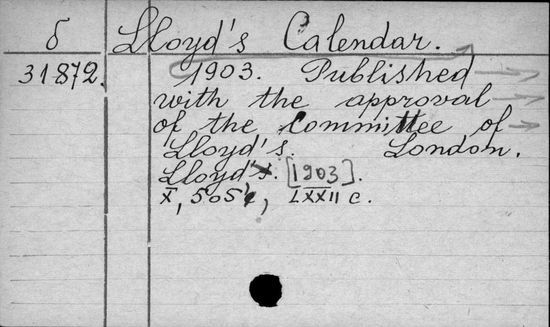 б Lloyd's Calendar.
31872. 1903. Published
with the approval
of the Committee of
Lloyd's. London.
Lloyd's. [1903].
X, 505, LXXII c.